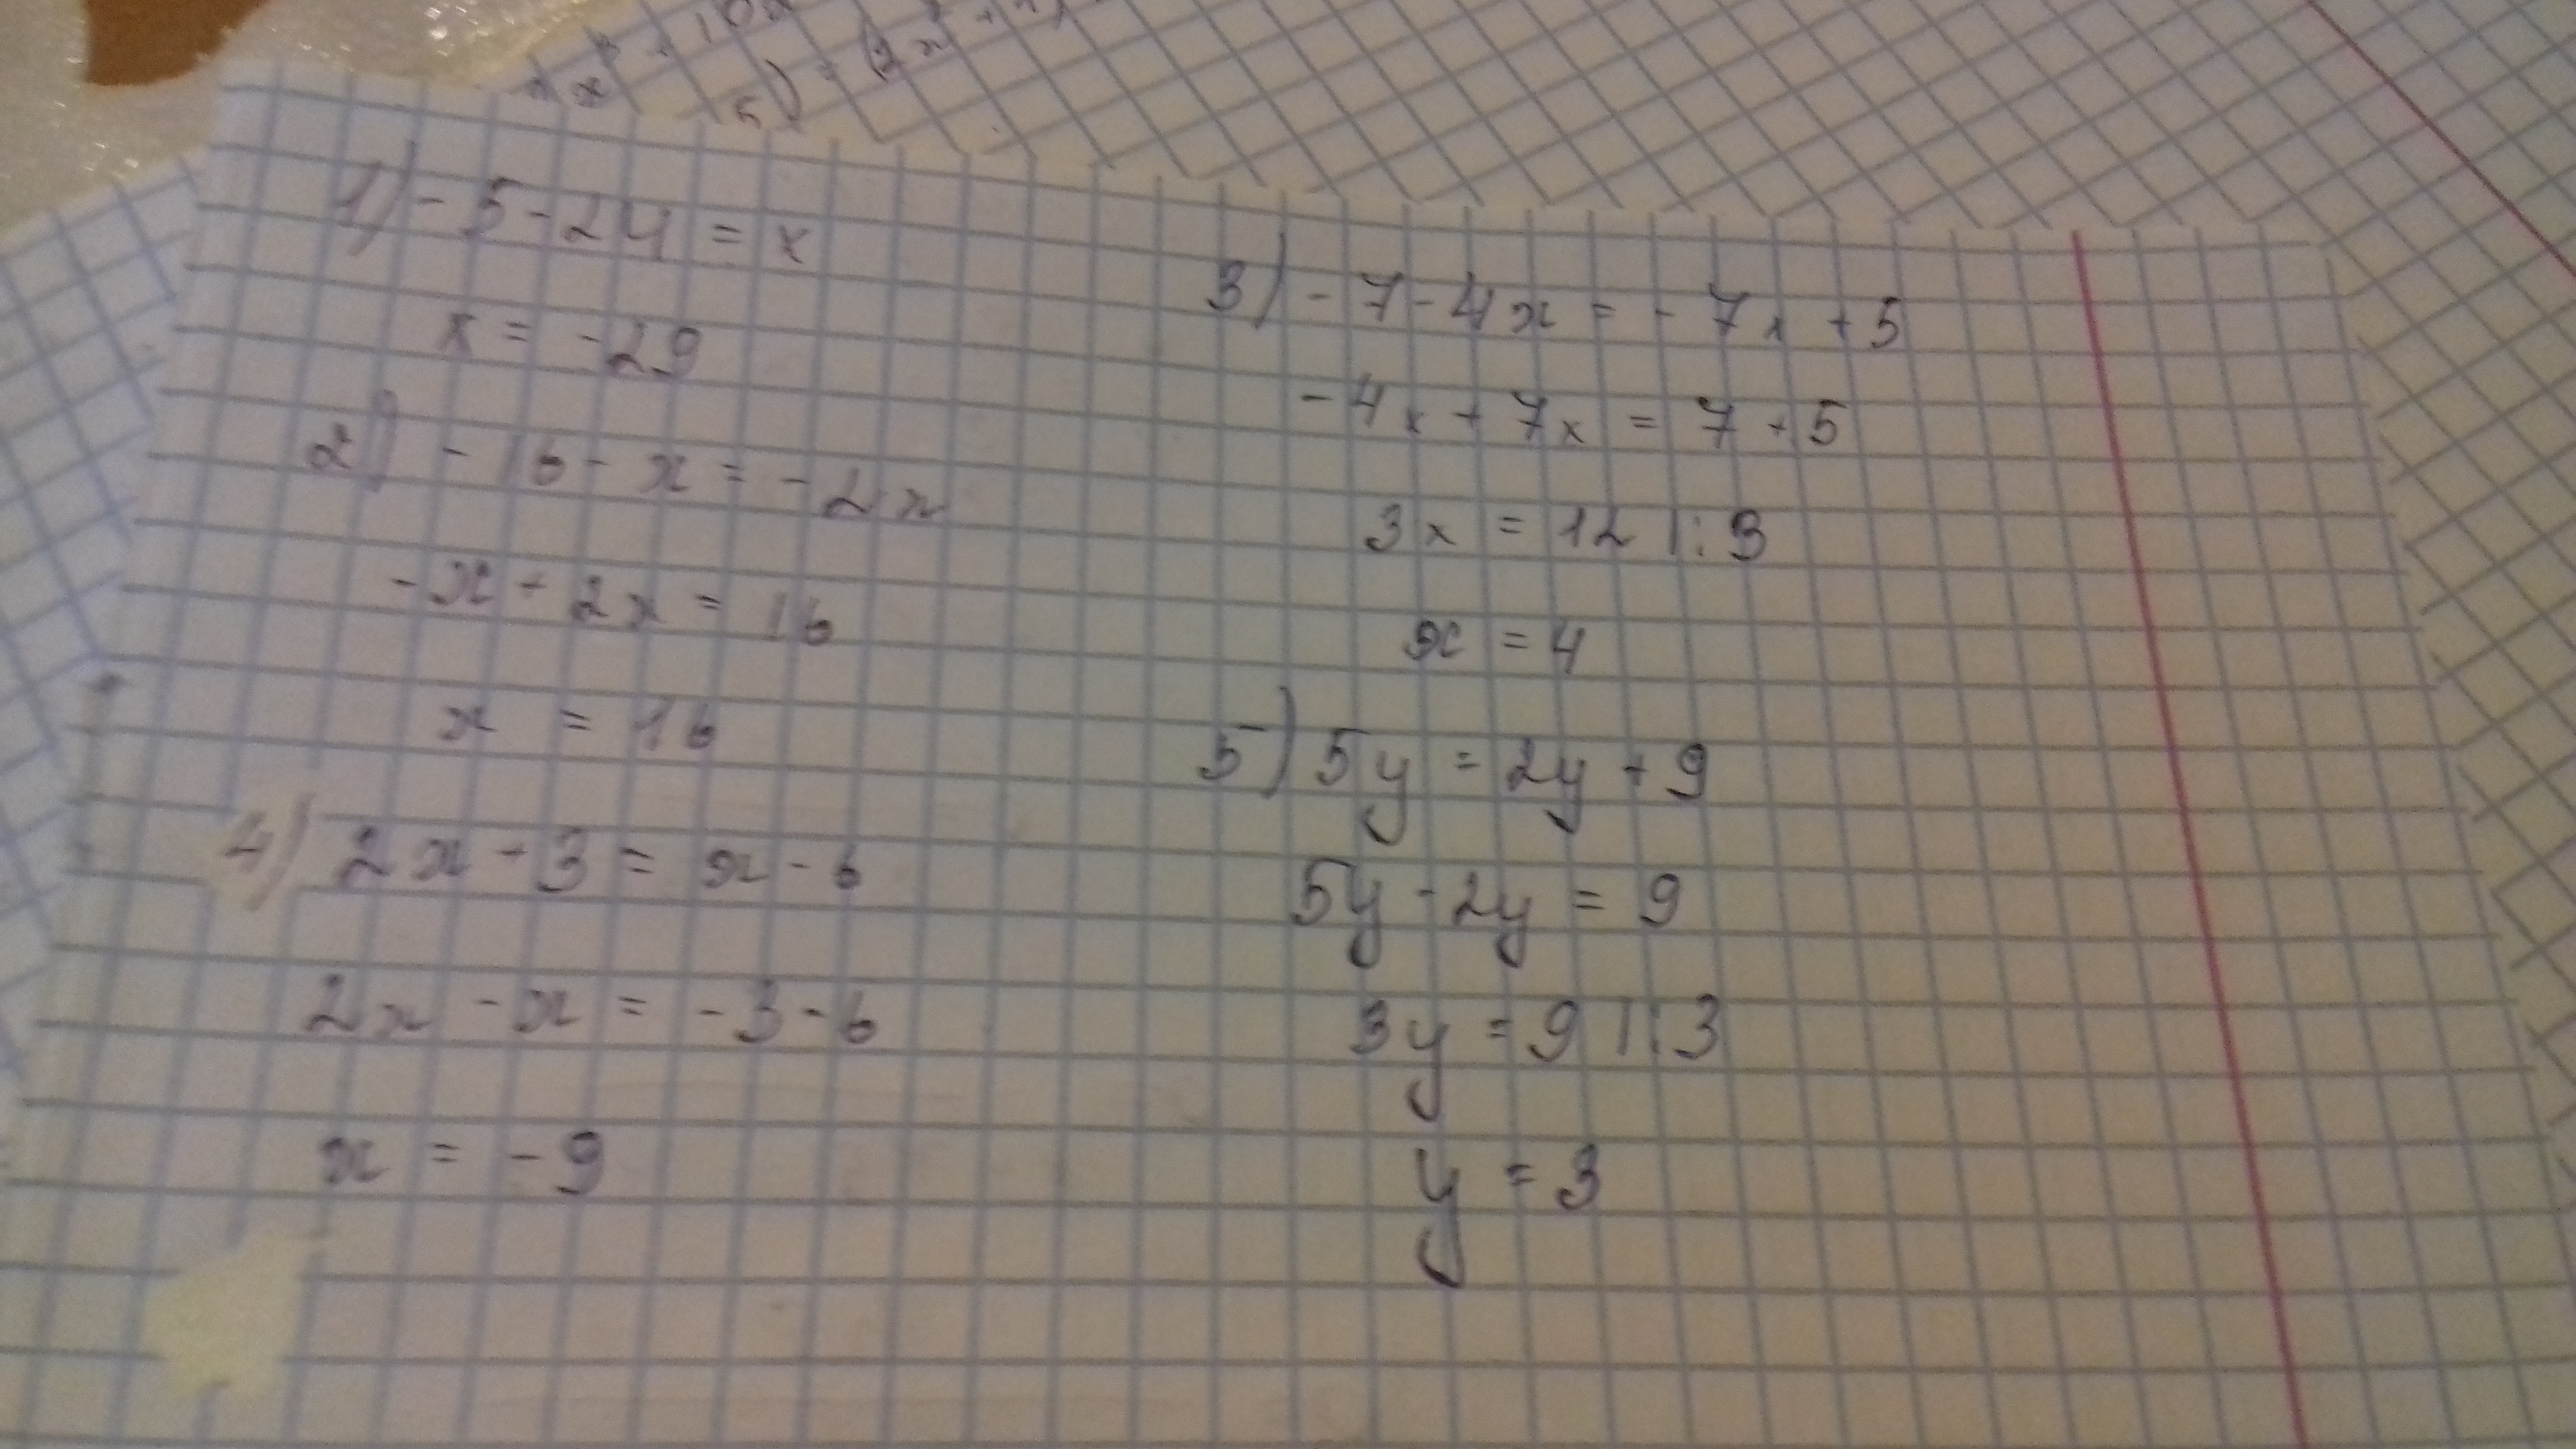 1) -5-24 = x
x = -29
2) -16-x = -2x
-x+2x = 16
x = 16
4) 2x+3 = x-6
2x-x = -3-6
x = -9
3) -7-4x = -7x+5
-4x+7x = 7+5
3x = 12 |:3
x = 4
5) 5y = 2y+9
5y-2y = 9
3y = 9 |:3
y = 3